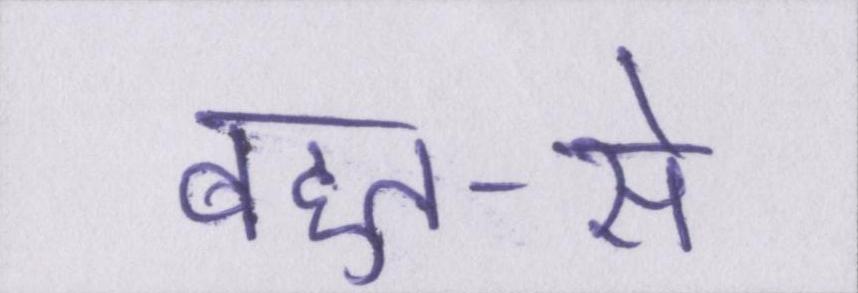 बहुत-से